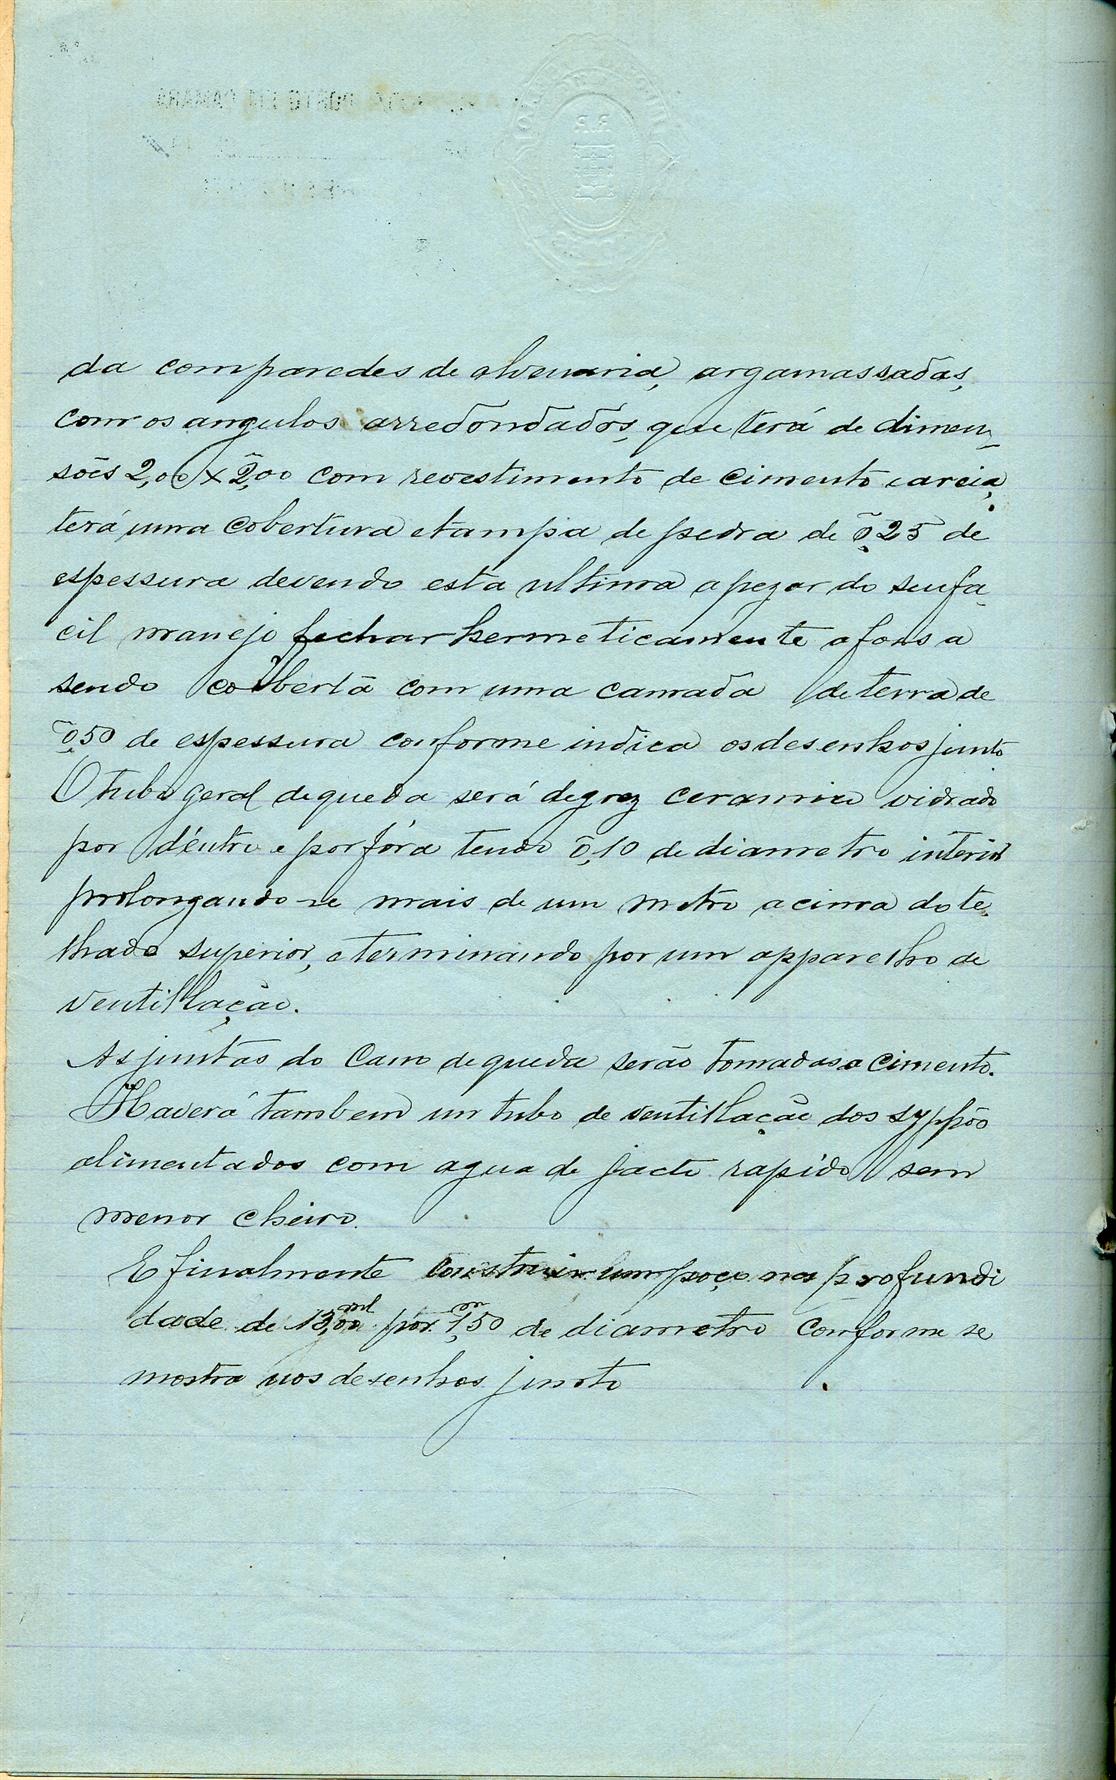 da com paredes de alvenaria, argamassadas,
com os angulos arredondados, que terá de dimen-
sões 2,00 x 2,00 com revestimento de cimento e areia,
terá uma cobertura e tampa de pedra de 0,25 de
espessura devendo esta ultima apezar do seu fa-
cil manejo fechar hermeticamente a fossa
sendo coberta com uma camada de terra de
0,50 de espessura conforme indica os desenhos junto
O tubo geral de queda será de grez ceramico vidrado
por dentro e por fóra tendo 0,10 de diametro interior
prolongando-se mais de um metro acima do te-
lhado superior, e terminando por um apparelho de
ventillação.
As juntas do cano de queda serão tomadas a cimento.
Haverá tambem um tubo de ventillação dos syphão
alimentados com agua de jacto rapido, sem
menor cheiro.
E finalmente construir um poço na profundi
dade de 13,00 por 1,50 de diametro conforme se
mostra nos desenhos junto